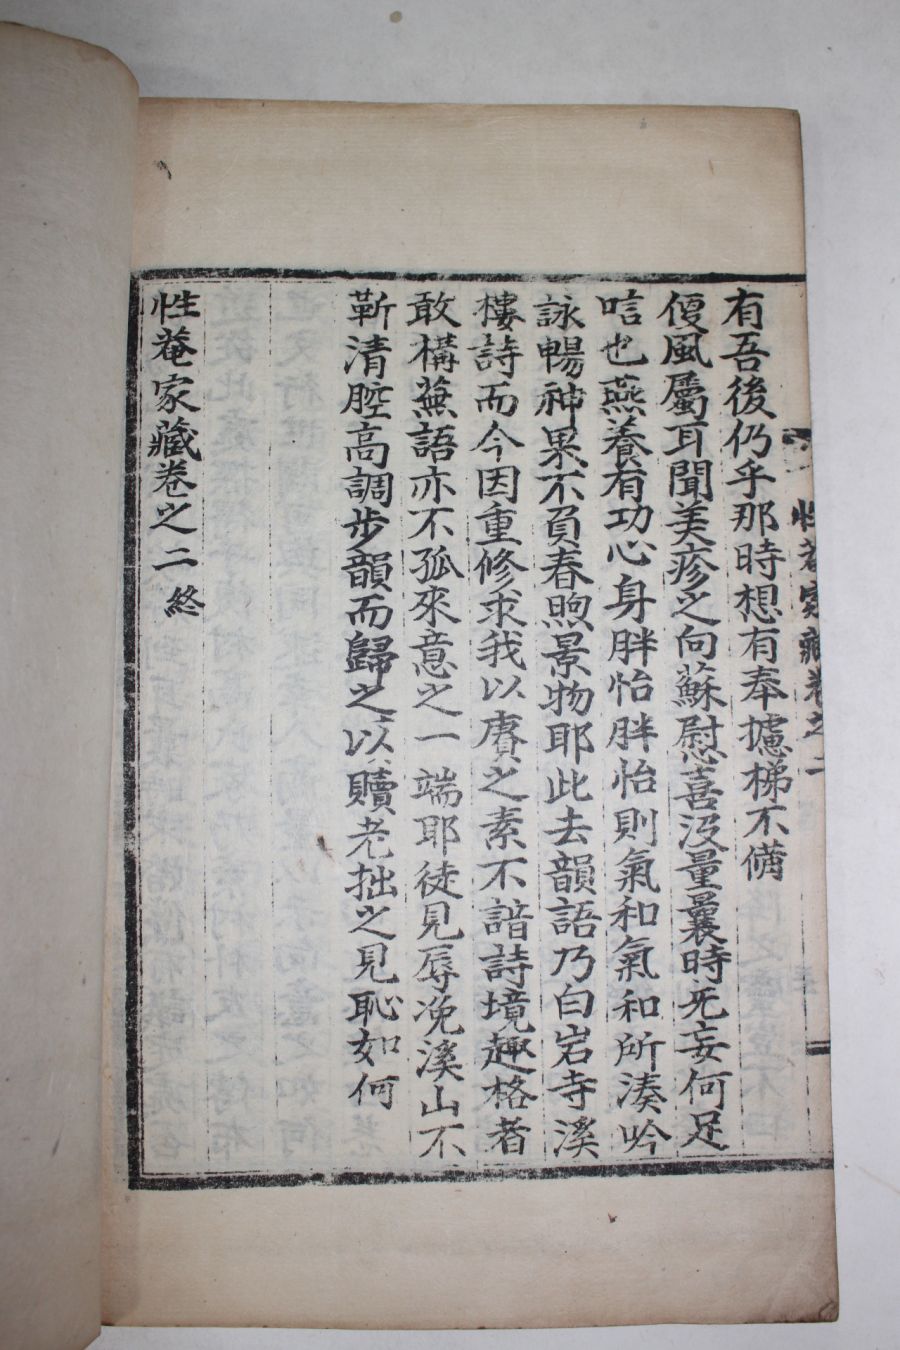 性菴家藏卷之二
有吾後仍乎那時想有奉攄梯不備
傻風屬耳聞美疹之向蘇慰喜沒量曩時旡妄何足
唁也燕養有功心身胖怡胖怡則氣和氣和所湊吟
詠暢神果不負春煦景物耶此去韻語乃白岩寺溪
樓詩而今因重修求我以賡之素不諳詩境趣格者
敢構蕪語亦不孤來意之一端耶徒見辱浼溪山不
靳清腔高調步韻而歸之以贖老拙之見恥如何
性菴家藏卷之二 終